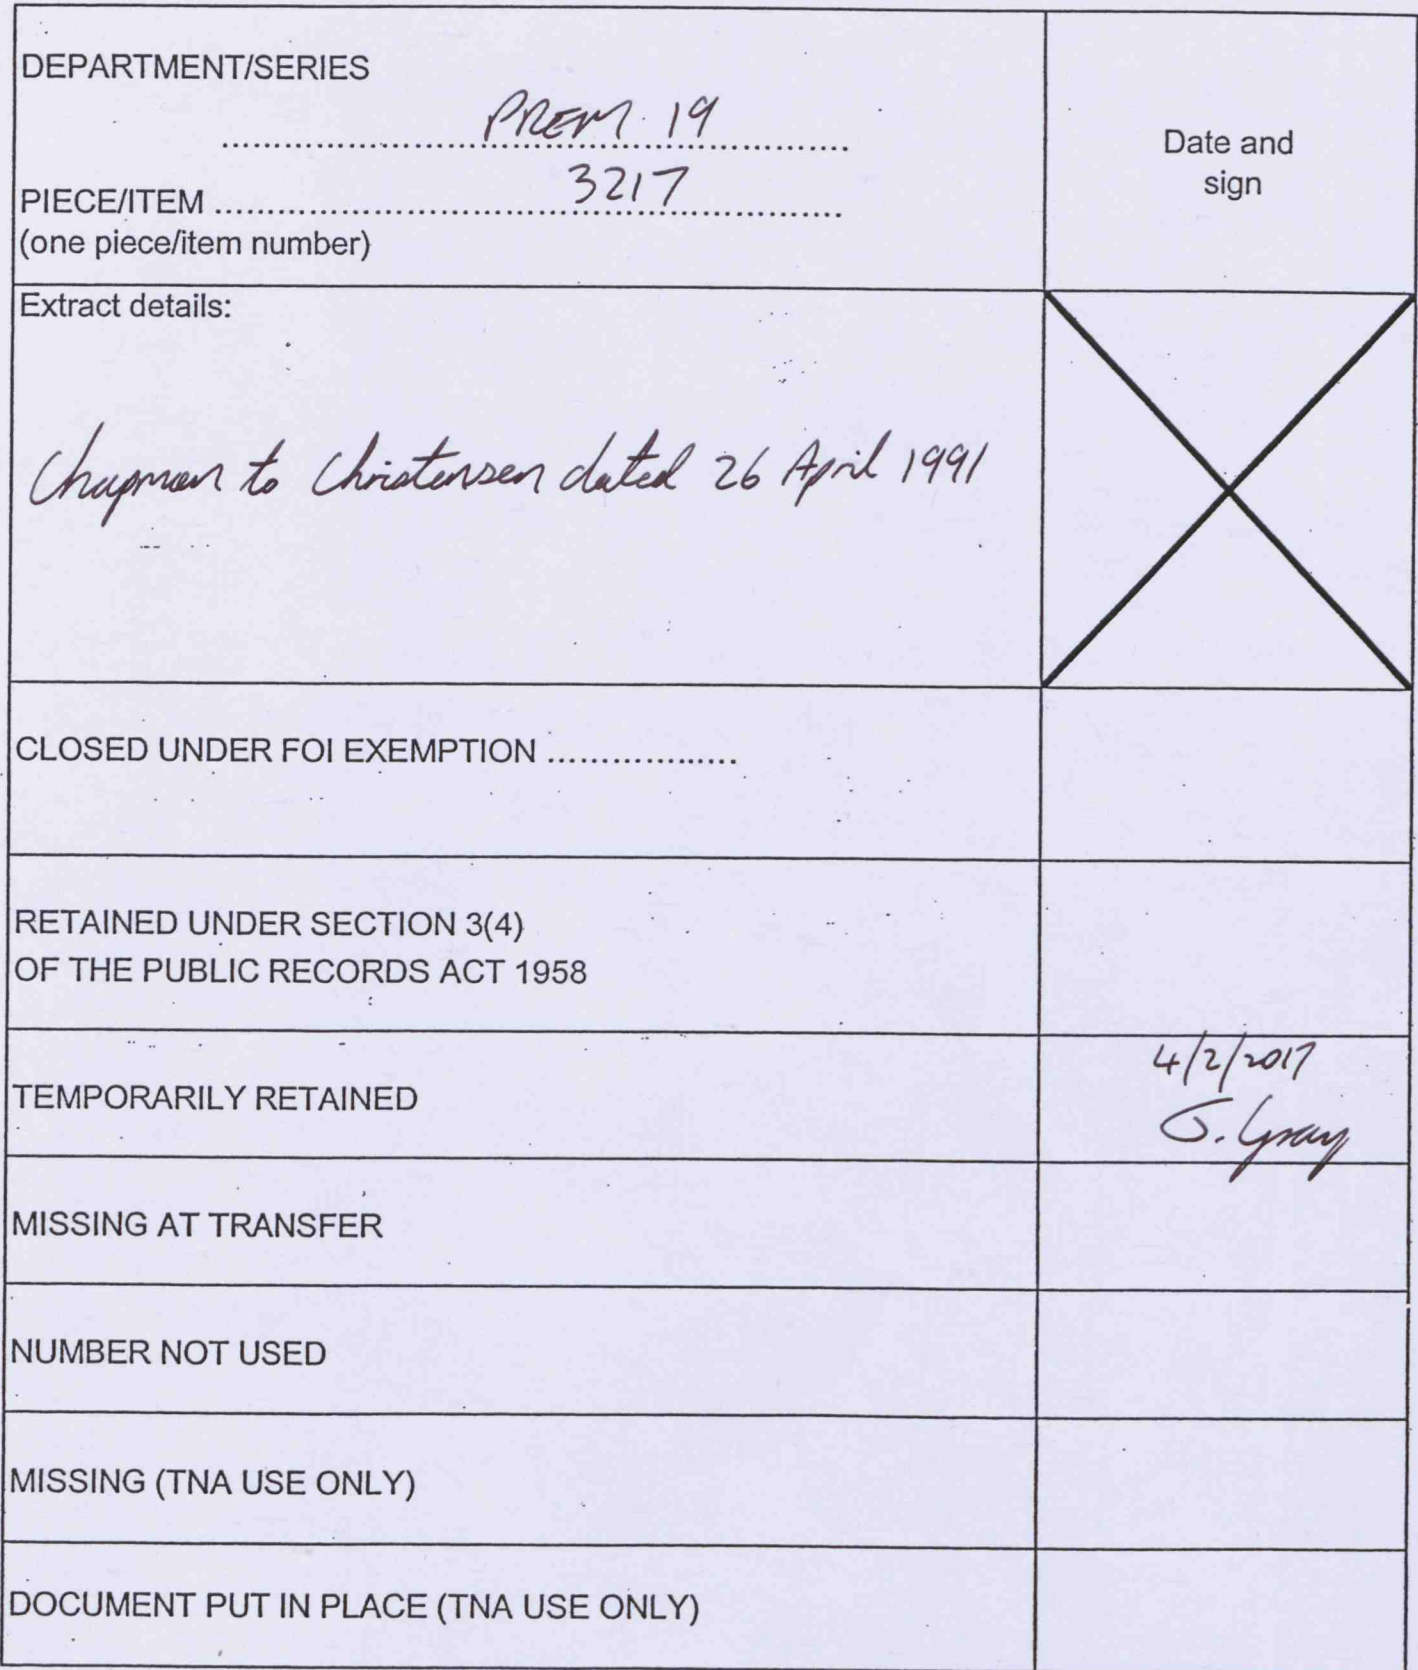 DEPARTMENT/SERIES
PREM 19
Date and
sign
PIECE/ITEM
3217
(one piece/item number)
Extract details:
Chapman to Christensen dated 26 April 1991
CLOSED UNDER FOI EXEMPTION
RETAINED UNDER SECTION 3(4)
OF THE PUBLIC RECORDS ACT 1958
TEMPORARILY RETAINED
4/2/2017
J. Gray
MISSING AT TRANSFER
NUMBER NOT USED
MISSING (TNA USE ONLY)
DOCUMENT PUT IN PLACE (TNA USE ONLY)